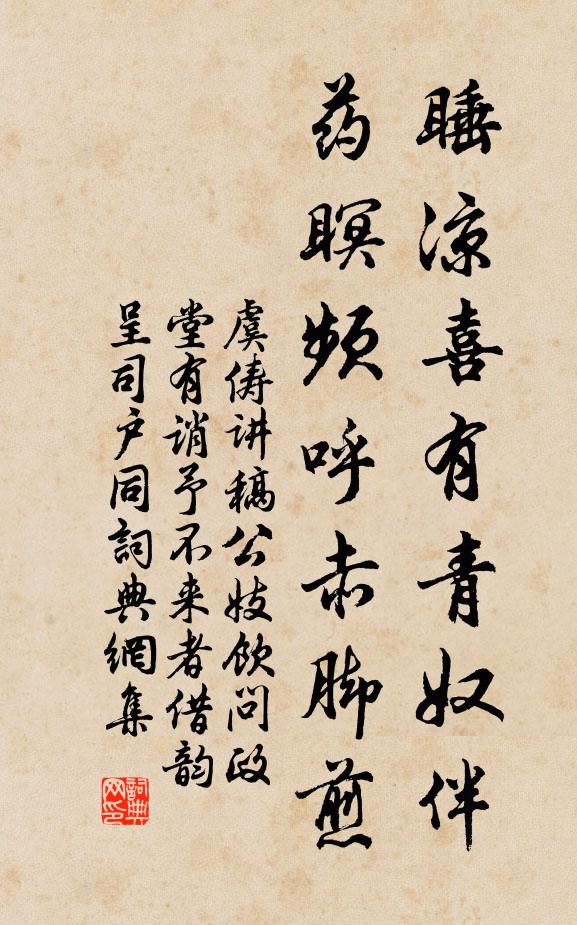 睡凉喜有青奴伴
药瞑频呼赤脚煎
虞俦讲稿公妓饮问政
堂有诮予不来者借韵
呈司户同詞典網集
詞典网印